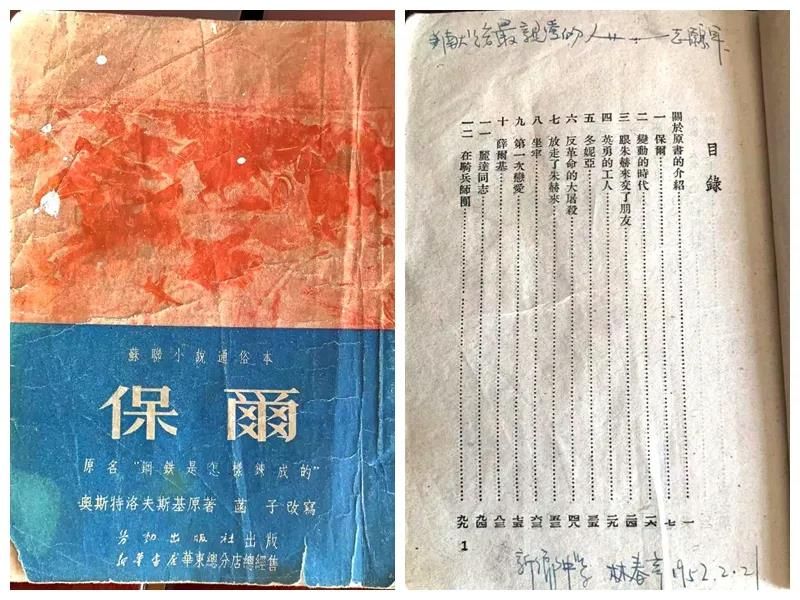 蘇聯小說通俗本
保爾
原名"鋼鉄是怎樣鍊成的"
奧斯特洛夫斯基原著 菡子改寫
勞動出版社出版
新華書店華東總分店總經售
献给最親愛的人——志願军
目錄
關於原書的介紹……一
一 保爾……七
二 變動的時代……一六
三 跟朱赫來交了朋友……二四
四 英勇的工人……二九
五 冬妮亞……三五
六 反革命的大屠殺……四八
七 放走了朱赫來……五三
八 坐牢……六三
九 第一次戀愛……七五
十 薛爾基……八三
一一 麗達同志……九四
一二 在騎兵師團……九九
1
中学 林春 1952.2.21